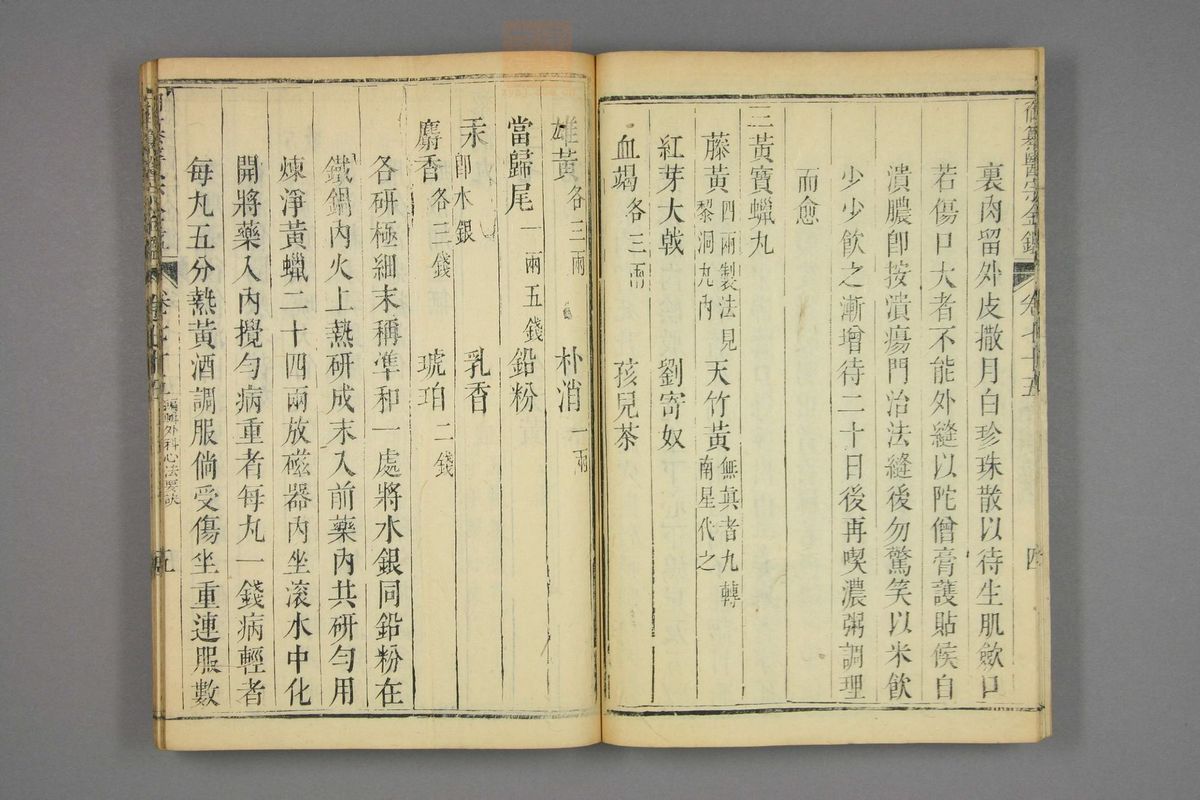 御纂醫宗金鑑 卷七十五 四
裏肉留外皮撒月白珍珠散以待生肌斂口
若傷口大者不能外縫以陀僧膏護貼候自
潰膿卽按潰瘍門治法縫後勿驚笑以米飮
少少飮之漸增待二十日後再喫濃粥調理
而愈
三黃寶蠟丸
藤黃四兩製法見黎洞丸內 天竹黃無眞者九轉南星代之
紅芽大戟 劉寄奴
血竭各三兩 孩兒茶
雄黃各三兩 朴消一兩
當歸尾一兩五錢 鉛粉
汞卽水銀 乳香
麝香各三錢 琥珀二錢
各研極細末稱準和一處將水銀同鉛粉在
鐵鍋內火上熱研成末入前藥內共研勻用
煉淨黃蠟二十四兩放磁器內坐滾水中化
開將藥入內攪勻病重者每丸一錢病輕者
每丸五分熱黃酒調服倘受傷至重連服數
卷七十五 編輯外科心法要訣 五